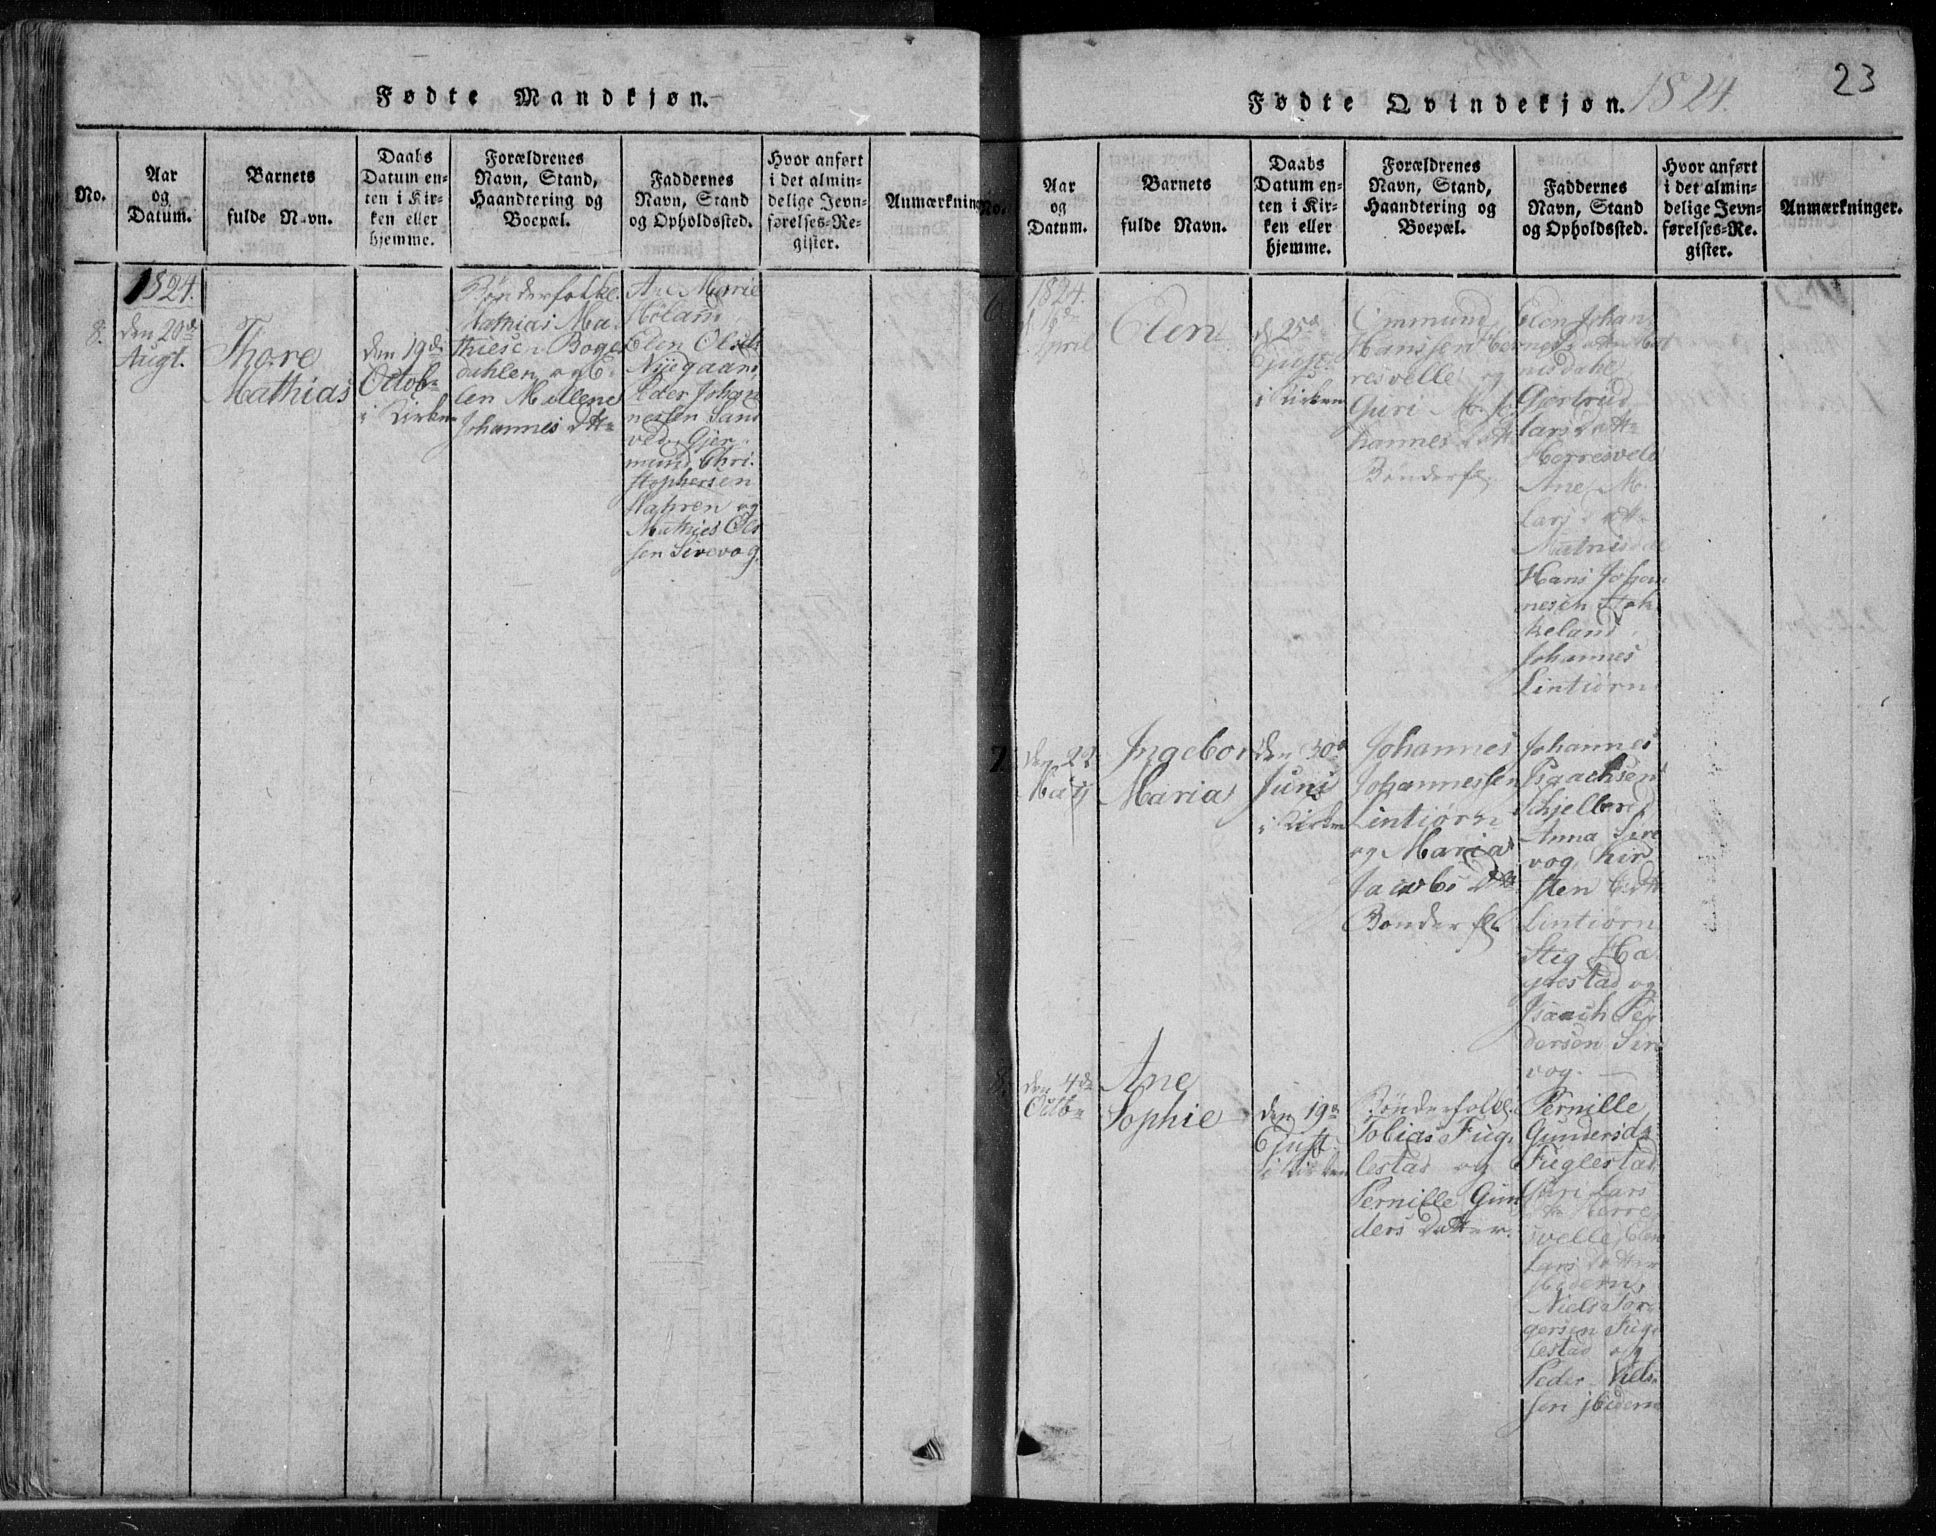 Fødte Mandkjøn.
No.
Aar
og
Datum.
Barnets
fulde Navn.
Daabs
Datum en-
ten i Kir-
ken eller
hjemme.
Forældrenes
Navn, Stand,
Haandtering og
Boepæl.
Faddernes
Navn, Stand
og Opholdssted.
Hvor anført
i det almin-
delige Jevn-
førelses-Re-
gister.
Anmærkning
1824.
8.
den 20de
Augt.
Thore
Mathias
den 19de
Octob-
i Kirken
Bønderfolke
Mathias Ma-
thiesen Boge
dahlen og E-
len Mallene
Johannis Dtt-
Ane Marie
Høland
Elen Ols
Nygaard
Peder Johan
nessen Sand
ved, Gjer-
mund Chri-
stophersen
Hahren og
Mathies Ols
sen Sirevog.
Fødte Qvindekjøn. 1824.
23
No.
Aar
og
Datum.
Barnets
fulde Navn.
Daabs
Datum en-
ten i Kir-
ken eller
hjemme.
Forældrenes
Navn, Stand,
Haandtering og
Boepæl.
Faddernes
Navn, Stand
og Opholdssted.
Hvor anført
i det almin-
delige Jevn-
førelses-Re-
gister.
Anmærkninger.
1824.
6
16de
April
Elen
d 25de
Ejusd
i Kirken
Ommund
Hanssen Her-
resvelle og
Guri Jo-
hannes Datt
Bønderf.
Elen Johan-
nes Datt
Gjertrud
Lars Datt-
Herresvele
Ane M.
Lars Datt-
Hans Johan
nesen Hok-
keland
Johannes
Lintiørn
7.
den 22
Maij
Ingebor
Maria
den 30de
Juni
i Kirken
Johannes
Johannessen
Lintiørn
og Maria
Jacobs Dtt
Bønderfol
Johannes
Isaachsen
Schjelbred
Anna Sire
vog, Kir
sten E. Dtt
Lintiørn
Stig Ha-
gestad og
Isaach Pe-
dersen Sire
vog.
8.
den 4de
Octb-
Ane
Sophie
den 19de
Ejust
i Kirken
Bønderfolke
Tobias Fug-
lestad og
Pernille Gun
ders Datter.
Pernille
Gundersda
Fuglestad
Guri Lars
Dtt Herre
svelle, Elen
Lars Datter
ibidem,
Niels Tor-
gersen Fug-
lestad og
Peder Niels-
sen ibidem